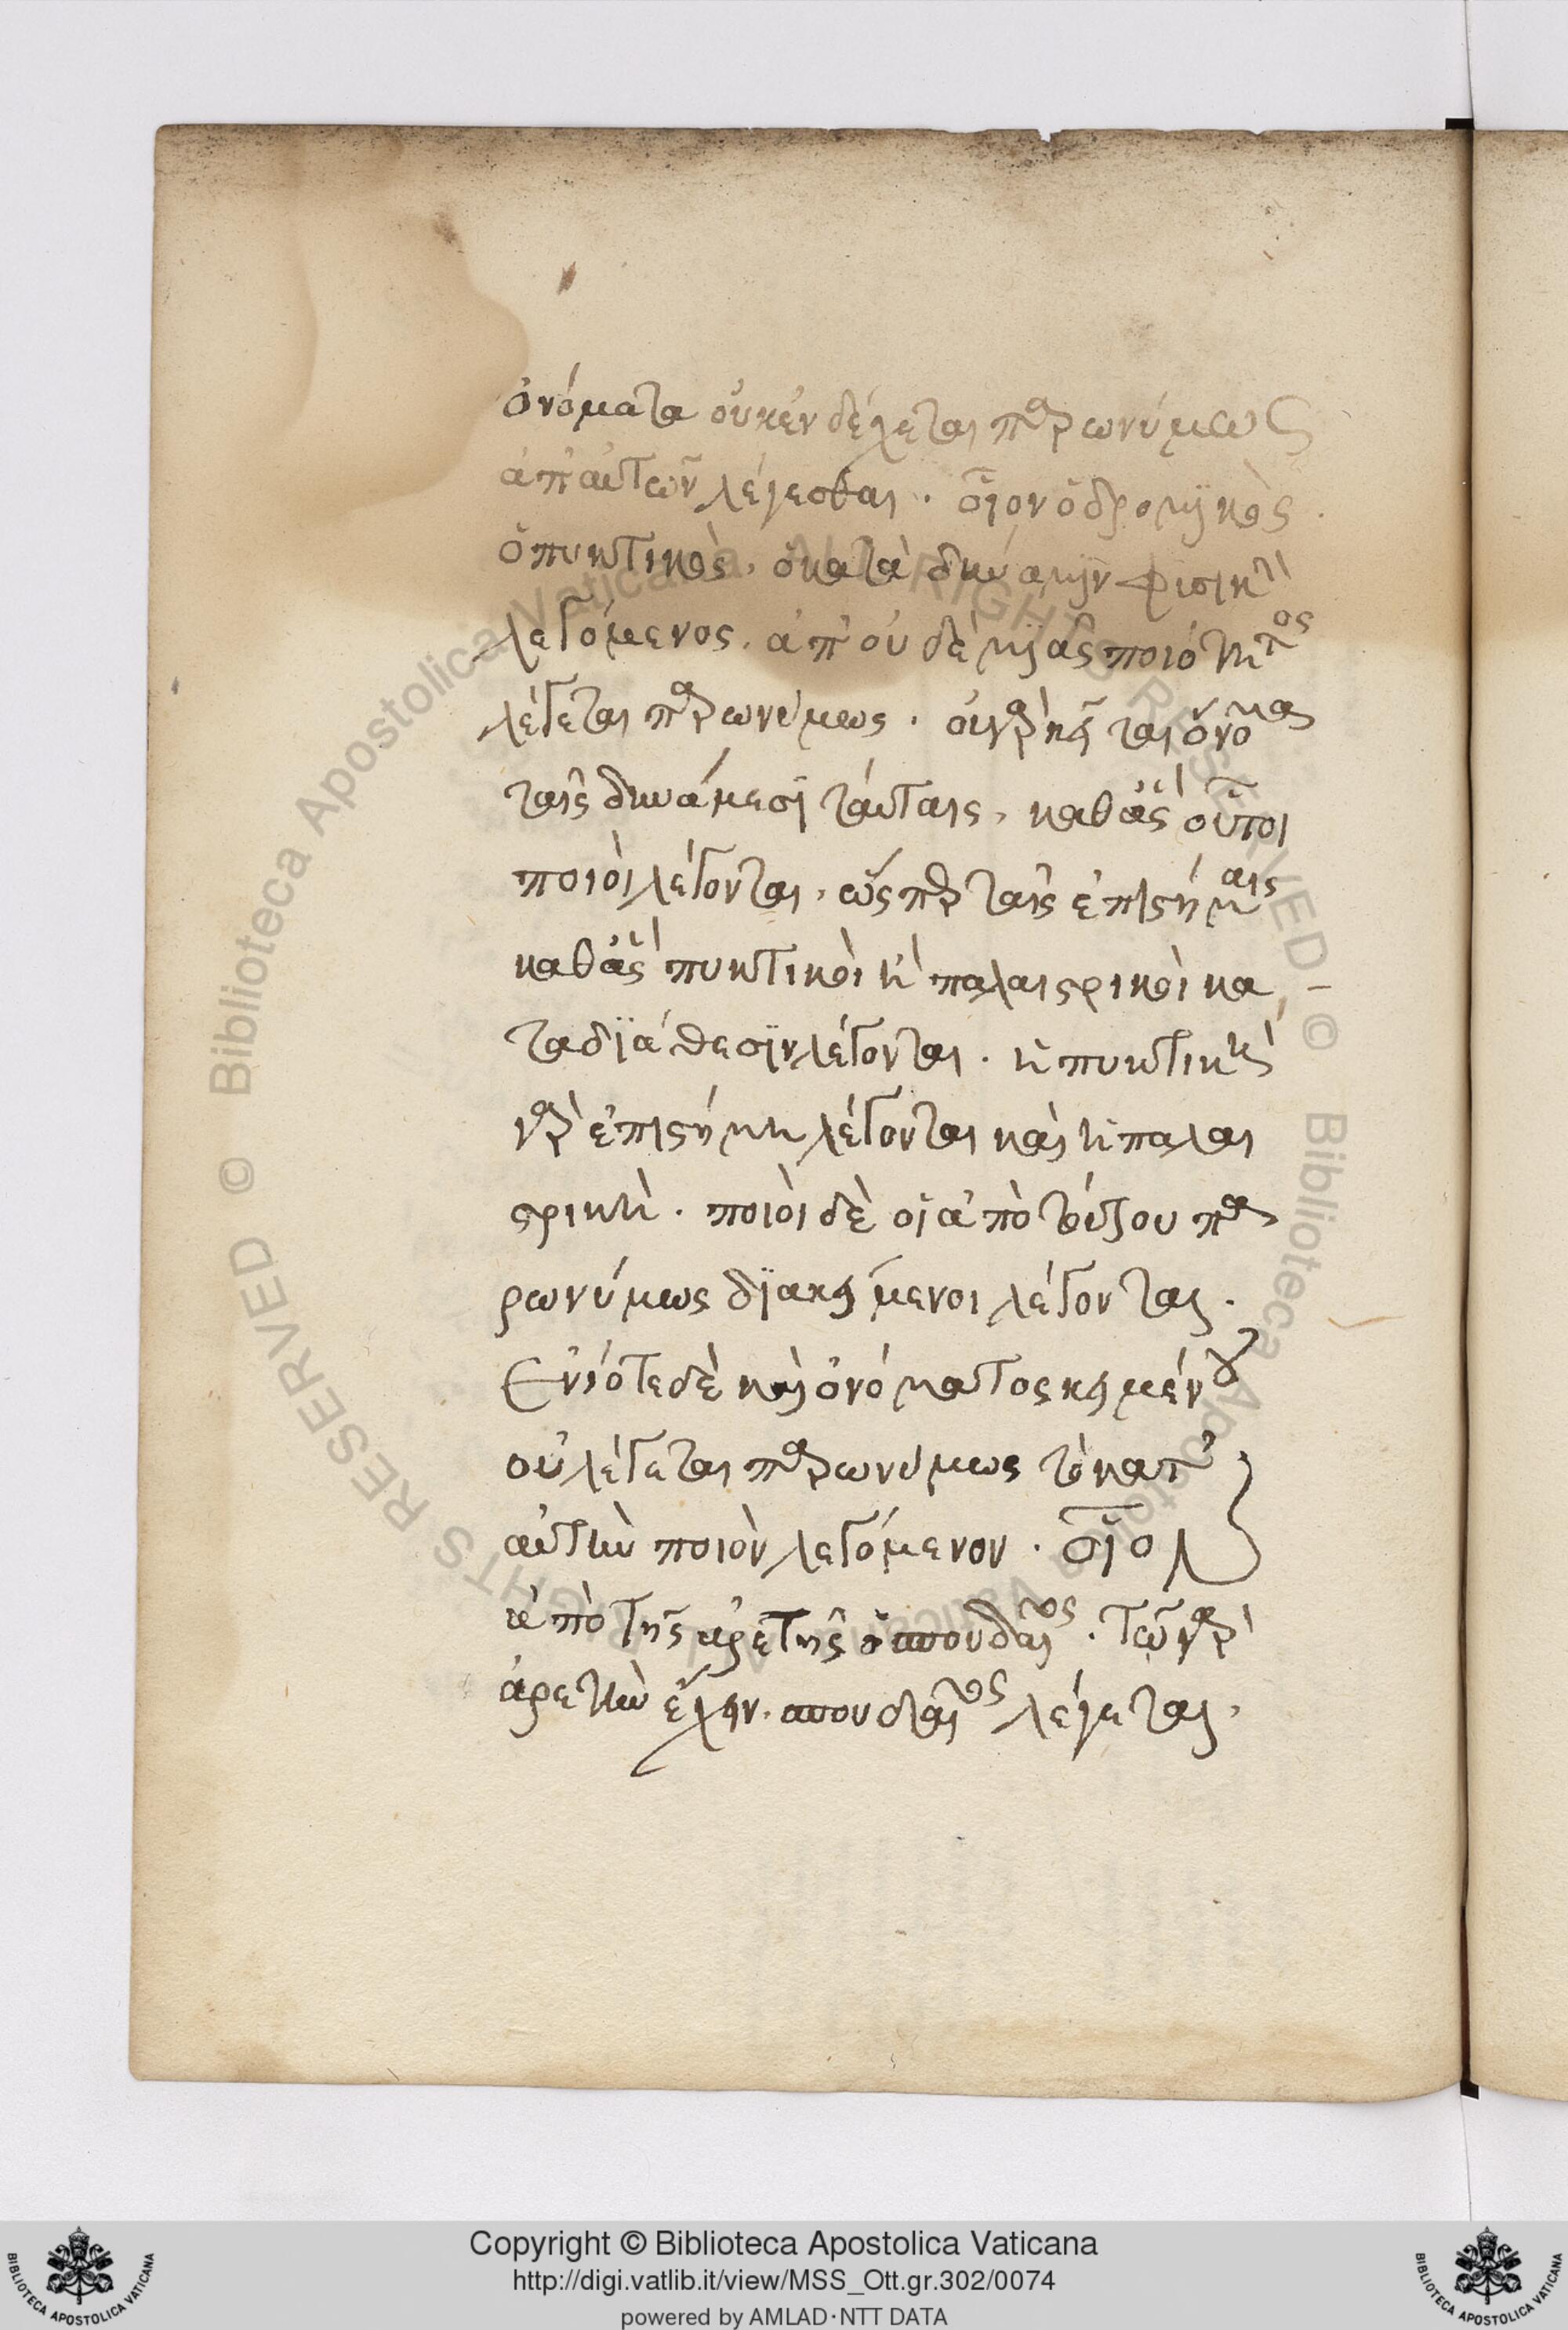 ὀνόματα οὐκ ἐνδέχεται παρωνύμως
ἀπ' αὐτῶν λέγεσθαι · οἷον ὁ δρομικὸς ·
ὁ πυκτικὸς, ὁ κατὰ δύναμιν φυσικὴ
λεγόμενος, ἀπ' οὐδεμιᾶς ποιότητος
λέγεται παρωνύμως · οὐ γὰρ κεῖται ὀνόμα
ταῖς δυνάμεσι ταύταις, καθ' ἃς οὗτοι
ποιοὶ λέγονται, ὥσπερ ταῖς ἐπιστήμαις
καθ' ἃς πυκτικοὶ ἢ παλαιστρικοὶ κα
τα διάθεσιν λέγονται · ἡ πυκτικὴ
γὰρ ἐπιστήμη λέγονται καὶ ἡ παλαι
στρικὴ · ποιοὶ δὲ οἱ ἀπὸ τούτου πα
ρωνύμως διακείμενοι λέγονται ·
Ενίοτε δὲ καὶ ὀνόματος κειμένου
οὐ λέγεται παρωνύμως τὸ κατ'
αὐτὴν ποιὸν λεγόμενον · οἷον
ἀπὸ τῆς ἀρετῆς ὁ σπουδαῖος · τῷ γὰρ
ἀρετὴν ἔχειν · σπουδαῖος λέγεται ·
Copyright © Biblioteca Apostolica Vaticana
http://digi.vatlib.it/view/MSS_Ott.gr.302/0074
powered by AMLAD·NTT DATA